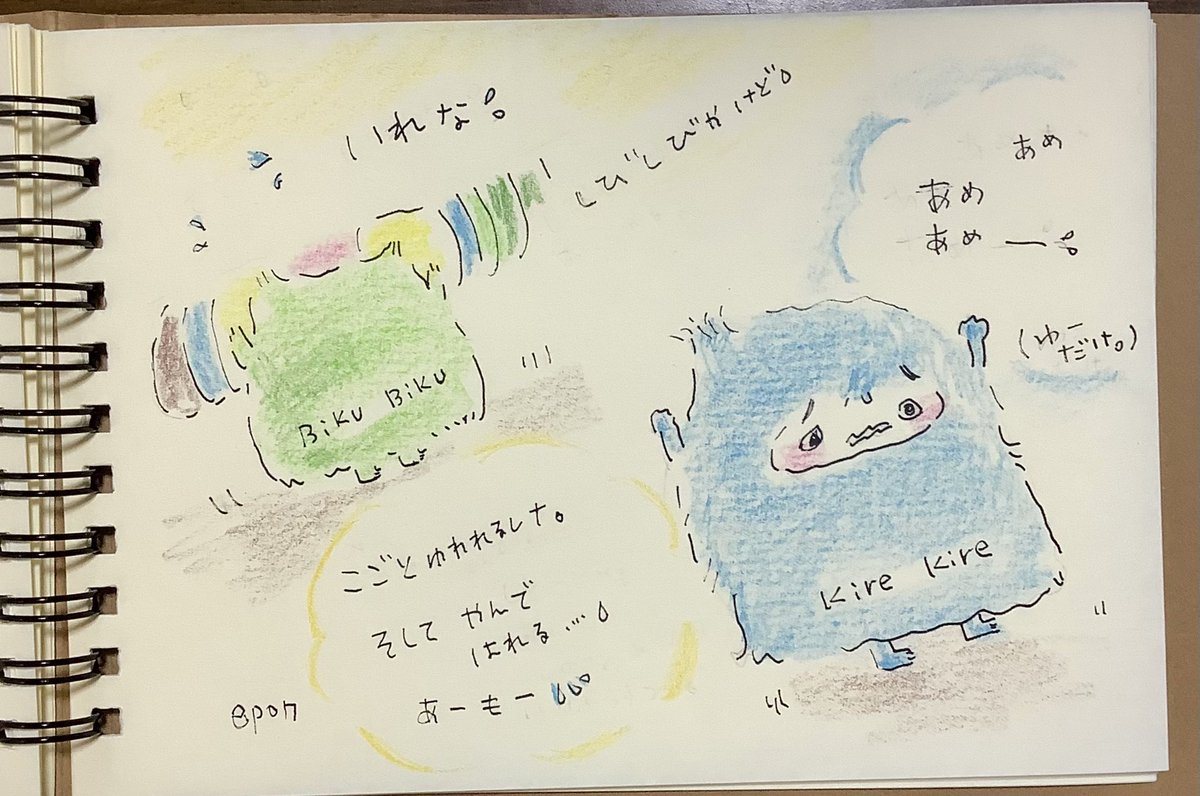 いれな。
しびしびかけど。
あめ
あめ
あめー。
(ゆー
だけ。)
Biku Biku
Kire Kire
こごとゆれれるしナ。
そして やんで
はれる…。
あーもー
epon